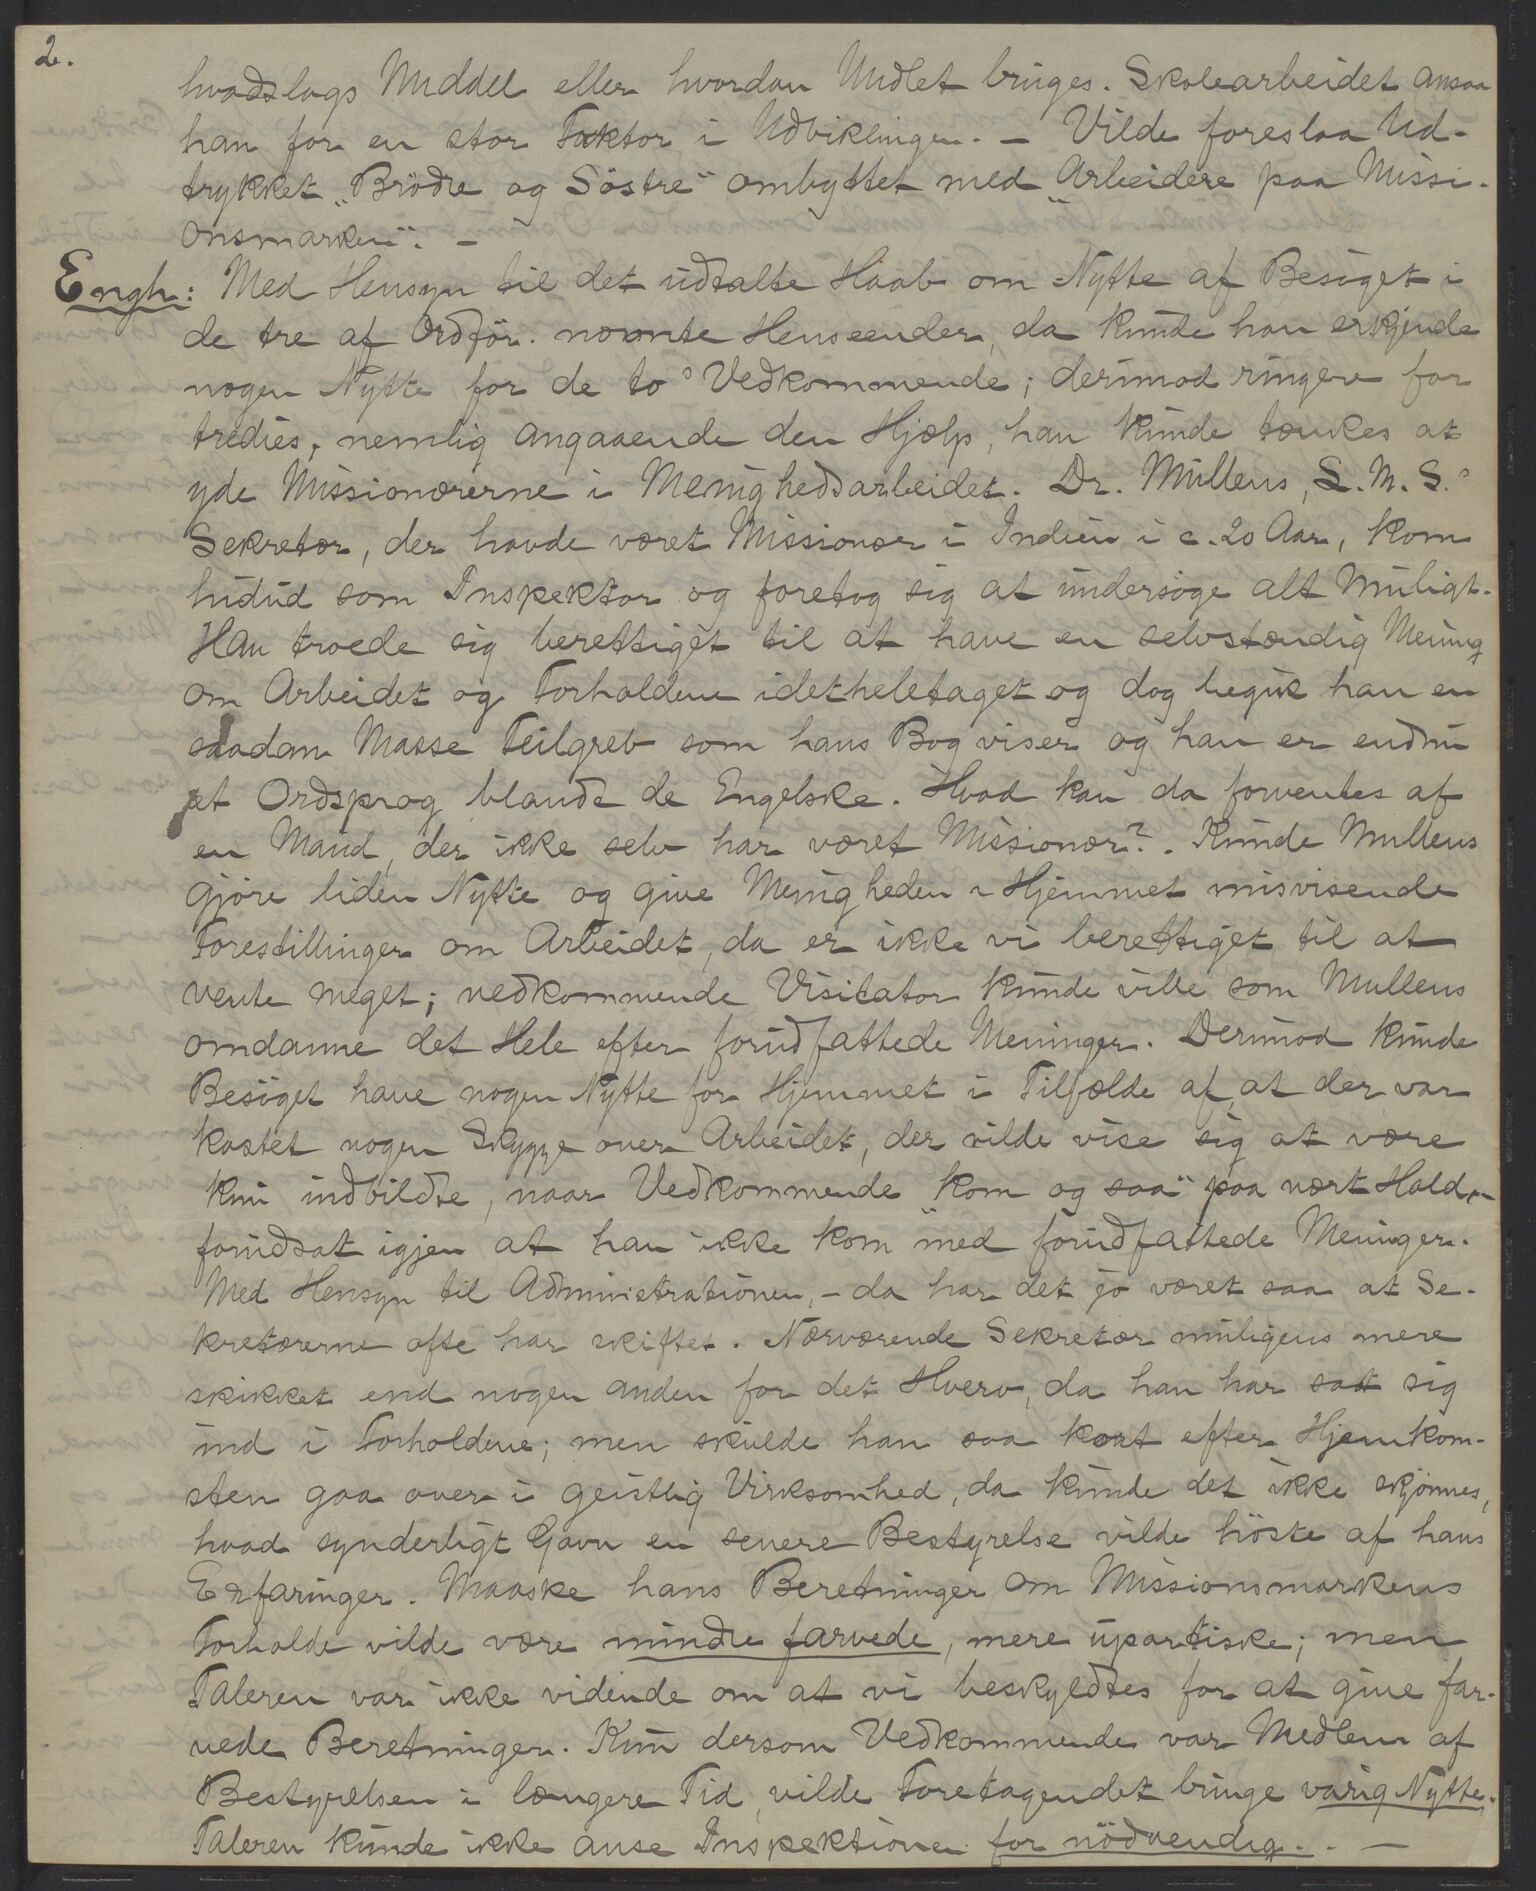 2.
hvadslags Middel eller hvordan Midlet bruges. Skolearbeidet ansaa
han for en stor Faktor i Udviklingen. — Vilde foreslaa Ud-
trykket „Brödre og Söstre“ ombyttet med „Arbeidere paa Missi-
onsmarken“. —
Engh: Med Hensyn til det udtalte Haab om Nytte af Besöget i
de tre af Ordför. nævnte Henseender, da kunde han erkjende
nogen Nytte for de to's Vedkommende; derimod ringere for
tredies, nemlig angaaende den Hjælp, han kunde tænkes at
yde Missionærerne i Menighedsarbeidet. Dr. Mullens, L.M.S.'s
Sekretær, der havde været Missionær i Indien i c. 20 Aar, kom
hidud som Inspektor og foretog sig at undersöge alt muligt.
Han troede sig berettiget til at have en selvstændig Mening
om Arbeidet og Forholdene idetheletaget og dog begik han en
saadan Masse Feilgreb som hans Bog viser og han er endnu
et Ordsprog blandt de Engelske. Hvad kan da forventes af
en Mand, der ikke selv har været Missionær?. Kunde Mullens
gjöre liden Nytte og give Menigheden i Hjemmet misvisende
Forestillinger om Arbeidet, da er ikke vi berettiget til at
vente meget; vedkommende Visitator kunde ville som Mullens
omdanne det Hele efter forudfattede Meninger. Derimod kunde
Besöget have nogen Nytte for Hjemmet i Tilfælde af, at der var
kastet nogen Skygge over Arbeidet, der vilde vise sig at være
kun indbildte, naar Vedkommende „kom og saa“ paa vort Hold, —
forudsat igjen at han ikke kom med forudfattede Meninger.
Med Hensyn til Administrationen, — da har det jo været saa at Se-
kretærerne ofte har skiftet. Nærværende Sekretær muligens mere
skikket end nogen anden for det Hverv, da han har sat sig
ind i Forholdene; men skulde han saa kort efter Hjemkom-
sten gaa over i geistlig Virksomhed, da kunde det ikke skjönnes,
hvad synderligt Gavn en senere Bestyrelse vilde höste af hans
Erfaringer. Maaske hans Beretninger om Missionsmarkens
Forholde vilde være mindre farvede, mere upartiske; men
Taleren var ikke vidende om at vi beskyldtes for at give far-
vede Beretninger. Kun dersom Vedkommende var Medlem af
Bestyrelsen i længere Tid, vilde Foretagendet bringe varig Nytte.
Taleren kunde ikke anse Inspektionen for nödvendig. . —